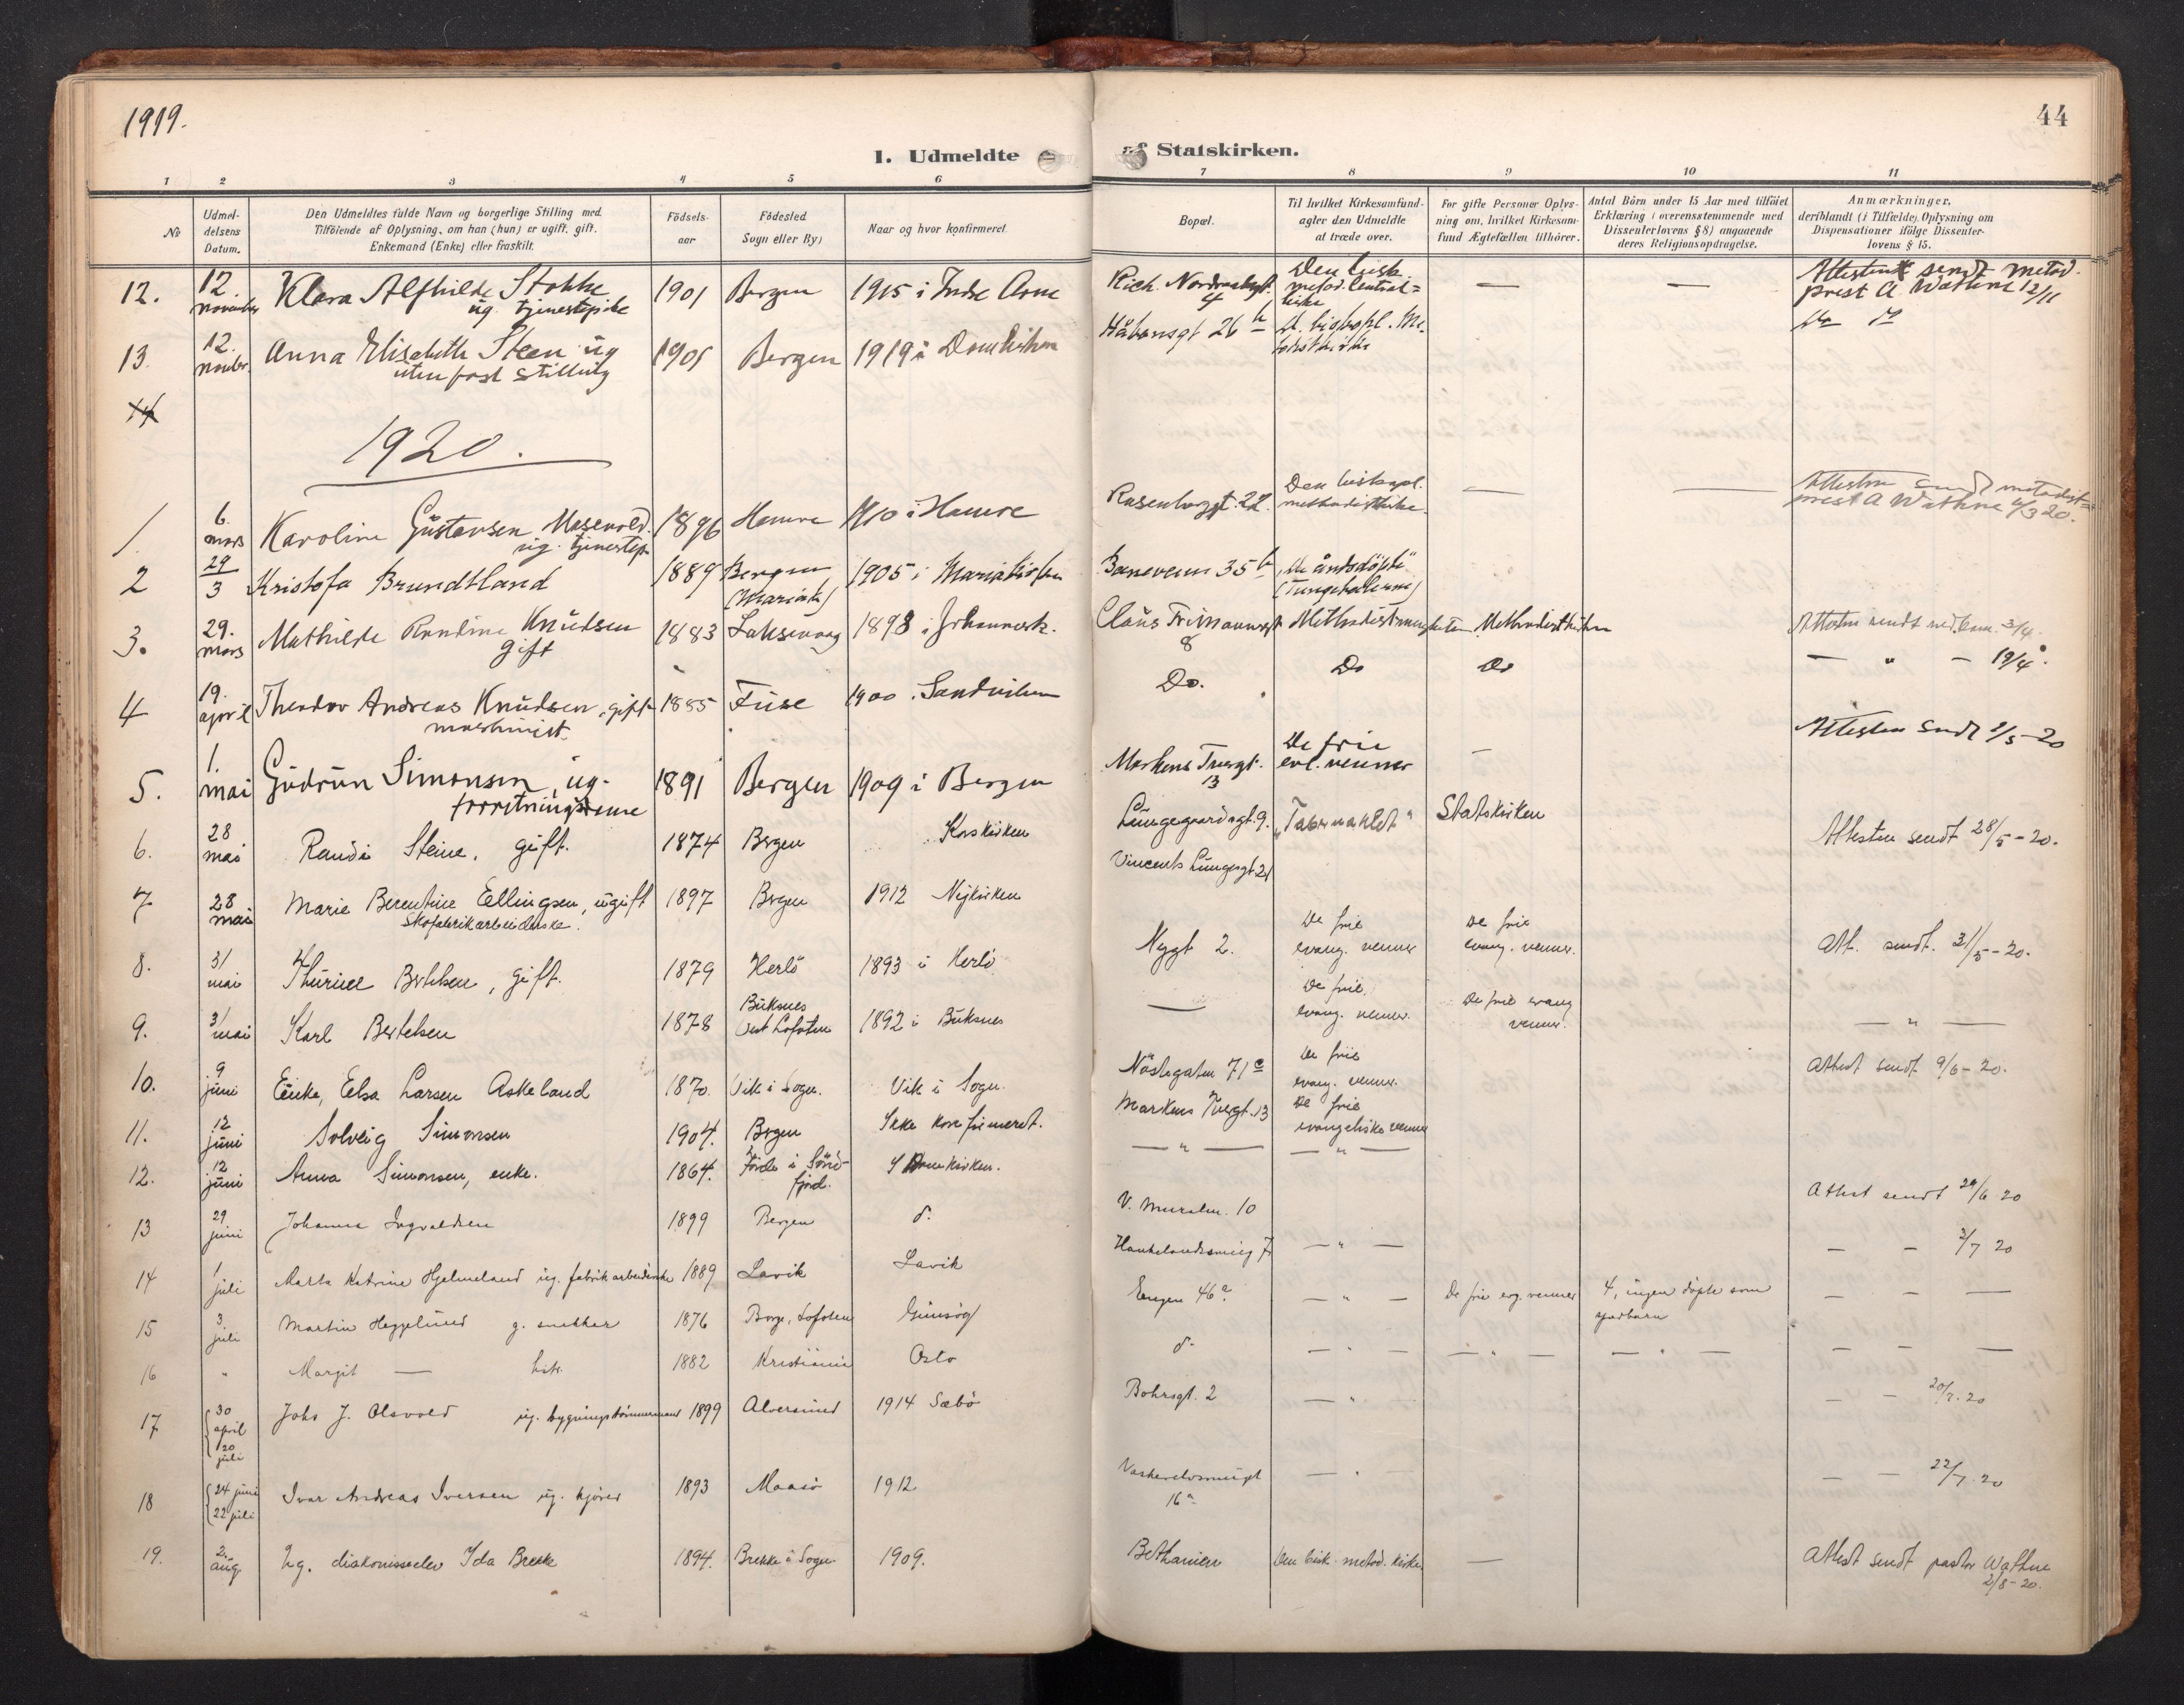 1919.
44
1. Udmeldte af Statskirken.
1 2 3 4 5 6 7 8 9 10 11
No
Udmel-
delsens
Datum.
Den Udmeldtes fulde Navn og borgerlige Stilling med
Tilföiende af Oplysning, om han (hun) er ugift, gift,
Enkemand (Enke) eller fraskilt.
Födsels-
aar
Födested
Sogn eller By)
Naar og hvor konfirmeret.
Bopæl.
Til hvilket Kirkesamfund
agter den Udmeldte
at træde over.
For gifte Personer Oplys-
ning om, hvilket Kirkesam-
fund Ægtefællen tilhörer.
Antal Börn under 15 Aar med tilföiet
Erklæring i overensstemmende med
Dissenterlovens § 8) angaaende
deres Religionsopdragelse.
Anmærkninger,
deriblandt (i Tilfælde) Oplysning om
Dispensationer ifölge Dissenter-
lovens § 15.
12. 12. november Klara Alfhilde Stokke 1901 Bergen 1915 i Indre Arne
ug. tjenestepike
4 Den bisk. metod. Central= kirke — — Attesten sendt metod.
prest A Wathne 12/11
13. 12. novbr. Anna Elisabeth Steen ug 1905 Bergen 1919 i Domkirken Håkonsgt 26 b
uten fast stilling
14
1920.
1. 6. mars Karoline Gustavsen 1896 Hamre 1910 i Hamre Rosenborggt. 22. Den biskopl. — — Attesten sendt metodist=
ug. tjenestep. methodistkirke prest A Wathne 6/3 20.
2 29/3 Kristofa Brundtland 1889 Bergen 1905 i Mariakirken 35 b De åndsdöpte
(Mariak) (Tungetalerne)
3. 29. mars Mathilde Knudsen 1883 Laksevaag 1898 i Johannesk. Claus Frimannsgt Methodistmenigheten Methodistkirken Attesten sendt 3/4
gift 8
4 19. april Theodor Andreas Knudsen, gift 1885 Fuse 1900 i Sandviken Do. Do Do — " — 19/4
maskinist.
5. 1. mai Gudrun Simonsen, ug. 1891 Bergen 1909 i Bergen Markens Tvergt. De frie — Attesten sendt 1/5-20
13 evl. venner
6. 28 mai Randi Steine, gift. 1874 Bergen Korskirken Lungegaardsgt. 9. "Tabernaklet" Statskirken Attesten sendt 28/5-20.
7 28 mai Marie Berentine Ellingsen, ugift 1897 Bergen 1912 Nykirken Vincents Lungesgt. 21
Skofabrikarbeiderske.
8. 31 mai Thurine Bertelsen, gift. 1879 Herlö 1893 i Herlö Nygt 2. De frie De frie Att. sendt. 31/5-20.
evang. venner evang. venner.
9. 31 mai Karl Bertelsen 1878 Buksnes 1892 i Buksnes — De frie De frie evang — " —
Vest Lofoten evang. venner. venner.
10. 9 juni Enke, Elsa Larsen Askeland 1870. Vik i Sogn. Vik i Sogn. Nöstegaten 71 c De frie Attest sendt 9/6-20.
evang. venner.
11. 12 juni Solveig Simonsen 1904. Bergen Ikke konfirmeret. Markens Tvergt. 13 De frie
evangeliske venner
12. 12 juni Anna Simonsen, enke. 1864. Förde i Sönd- I Domkirken. — " — — " —
fjord.
13 29 juni Johanna Ingvaldsen 1899 Bergen d. V. Muralm. 10 Attest sendt 29/6 20
14 1 juli Marta Katrine Hjelmeland ug. fabrikarbeiderske 1889 Lavik Lavik Haukelandsveieg 7 — " — — — 2/7 20
15 3. juli Martin Heggelund g. snekker 1876 Borge, Lofoten Gimsöy Engen 46 a. — " — De frie evg. venner 4, ingen döpte som — — —
spedbarn
16 " Margit — 1882 Kristiania Oslo d. — " — — " — — " — — — —
17 30 april Johs J. Olsvold ug. bygningstömmermand 1899 Alversund 1914 Sæbö Bohrsgt. 2 — " — — — 20/7. 20
20 juli
18 24 juni Ivar Andreas Iversen ug. kjörer 1893 Maasö 1912 — " — — — 22/7. 20
22 juli 16 a
19. 2. aug. Ug. diakonisseelev Ida Brekke 1894. Brekke i Sogn. 1909. Bethanien Den bisk. metod. kirke. — Attest sendt pastor Wathne
2/8-20.